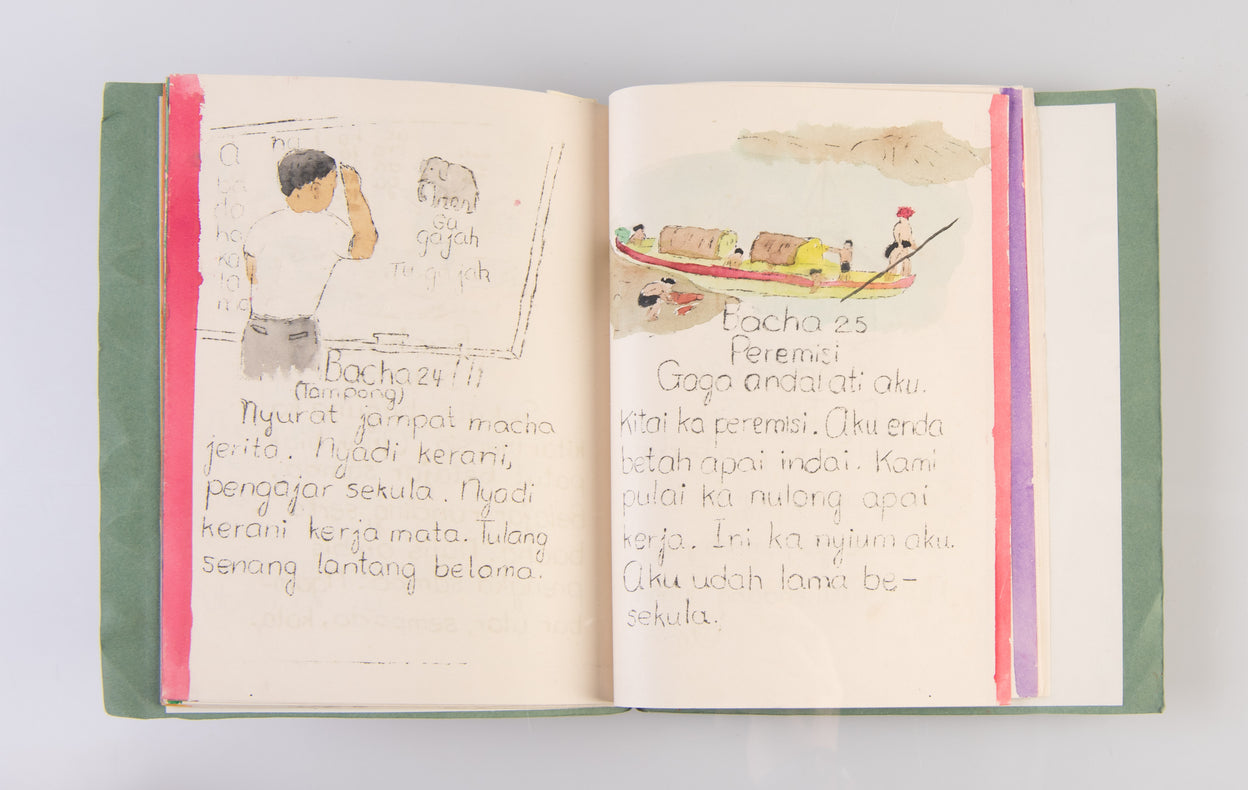 na
a
ba
da
ha
ka
la
ma
Ga
gajah
Bacha 24
(Tampong)
Nyurat jampat macha
jerita. Nyadi kerani,
pengajar sekula. Nyadi
kerani kerja mata. Tulang
senang lantang belama.
Bacha 25
Peremisi
Gaga andal ati aku.
Kitai ka peremisi. Aku enda
betah apai indai. Kami
pulai ka nulong apai
kerja. Ini ka nyium aku.
Aku udah lama be-
sekula.